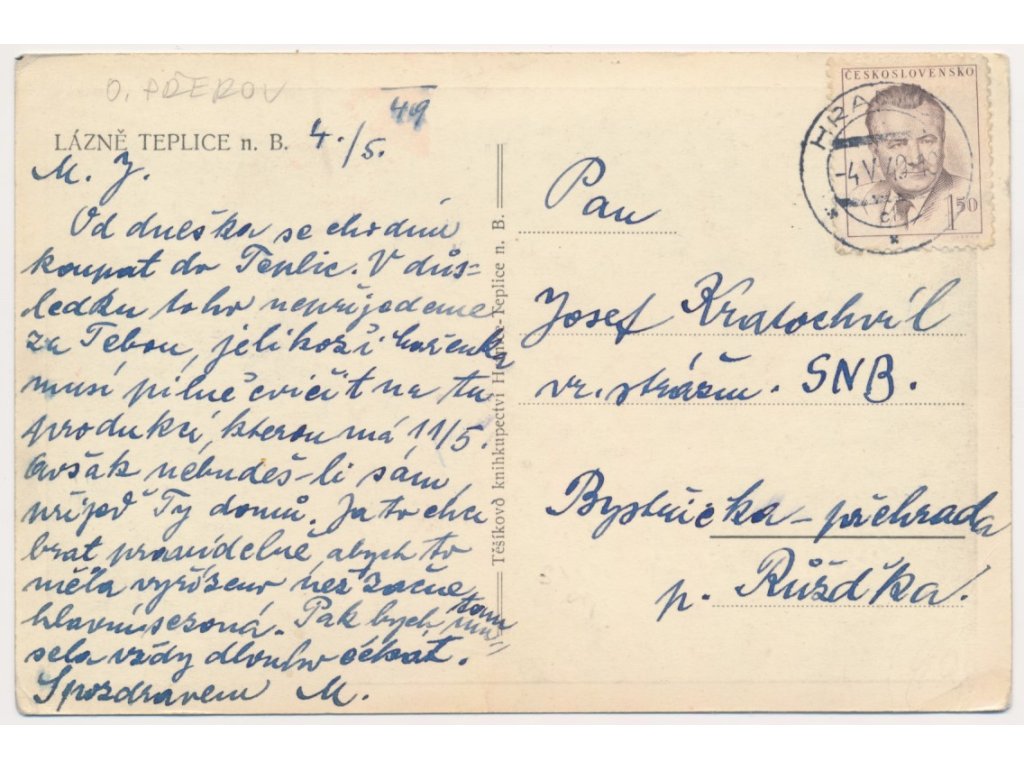 O. PŘEROV
LÁZNĚ TEPLICE n. B. 4./5. 49
M. J.
Od dneška se chodím
koupat do Teplic. V důs-
ledku toho nepřijedeme
za Tebou, jelikož i Mařenka
musí pilně cvičit na tu
produkci, kterou má 11/5.
Avšak nebudeš-li sám
přijeď Ty domů. Ja to chci
brat pravidelně abych to
měla vyřízeno než začne
hlavní sezoná. Pak bych tam mu-
sela vždy dlouho čekat.
S pozdravem M.
Těšíkovo knihkupectví Hranice-Teplice n. B.
ČESKOSLOVENSKO
1 50
HRA
-4.V.49-18
Pan
Josef Kratochvíl
vr. strážm. SNB.
Bystřička - přehrada
p. Růžďka.